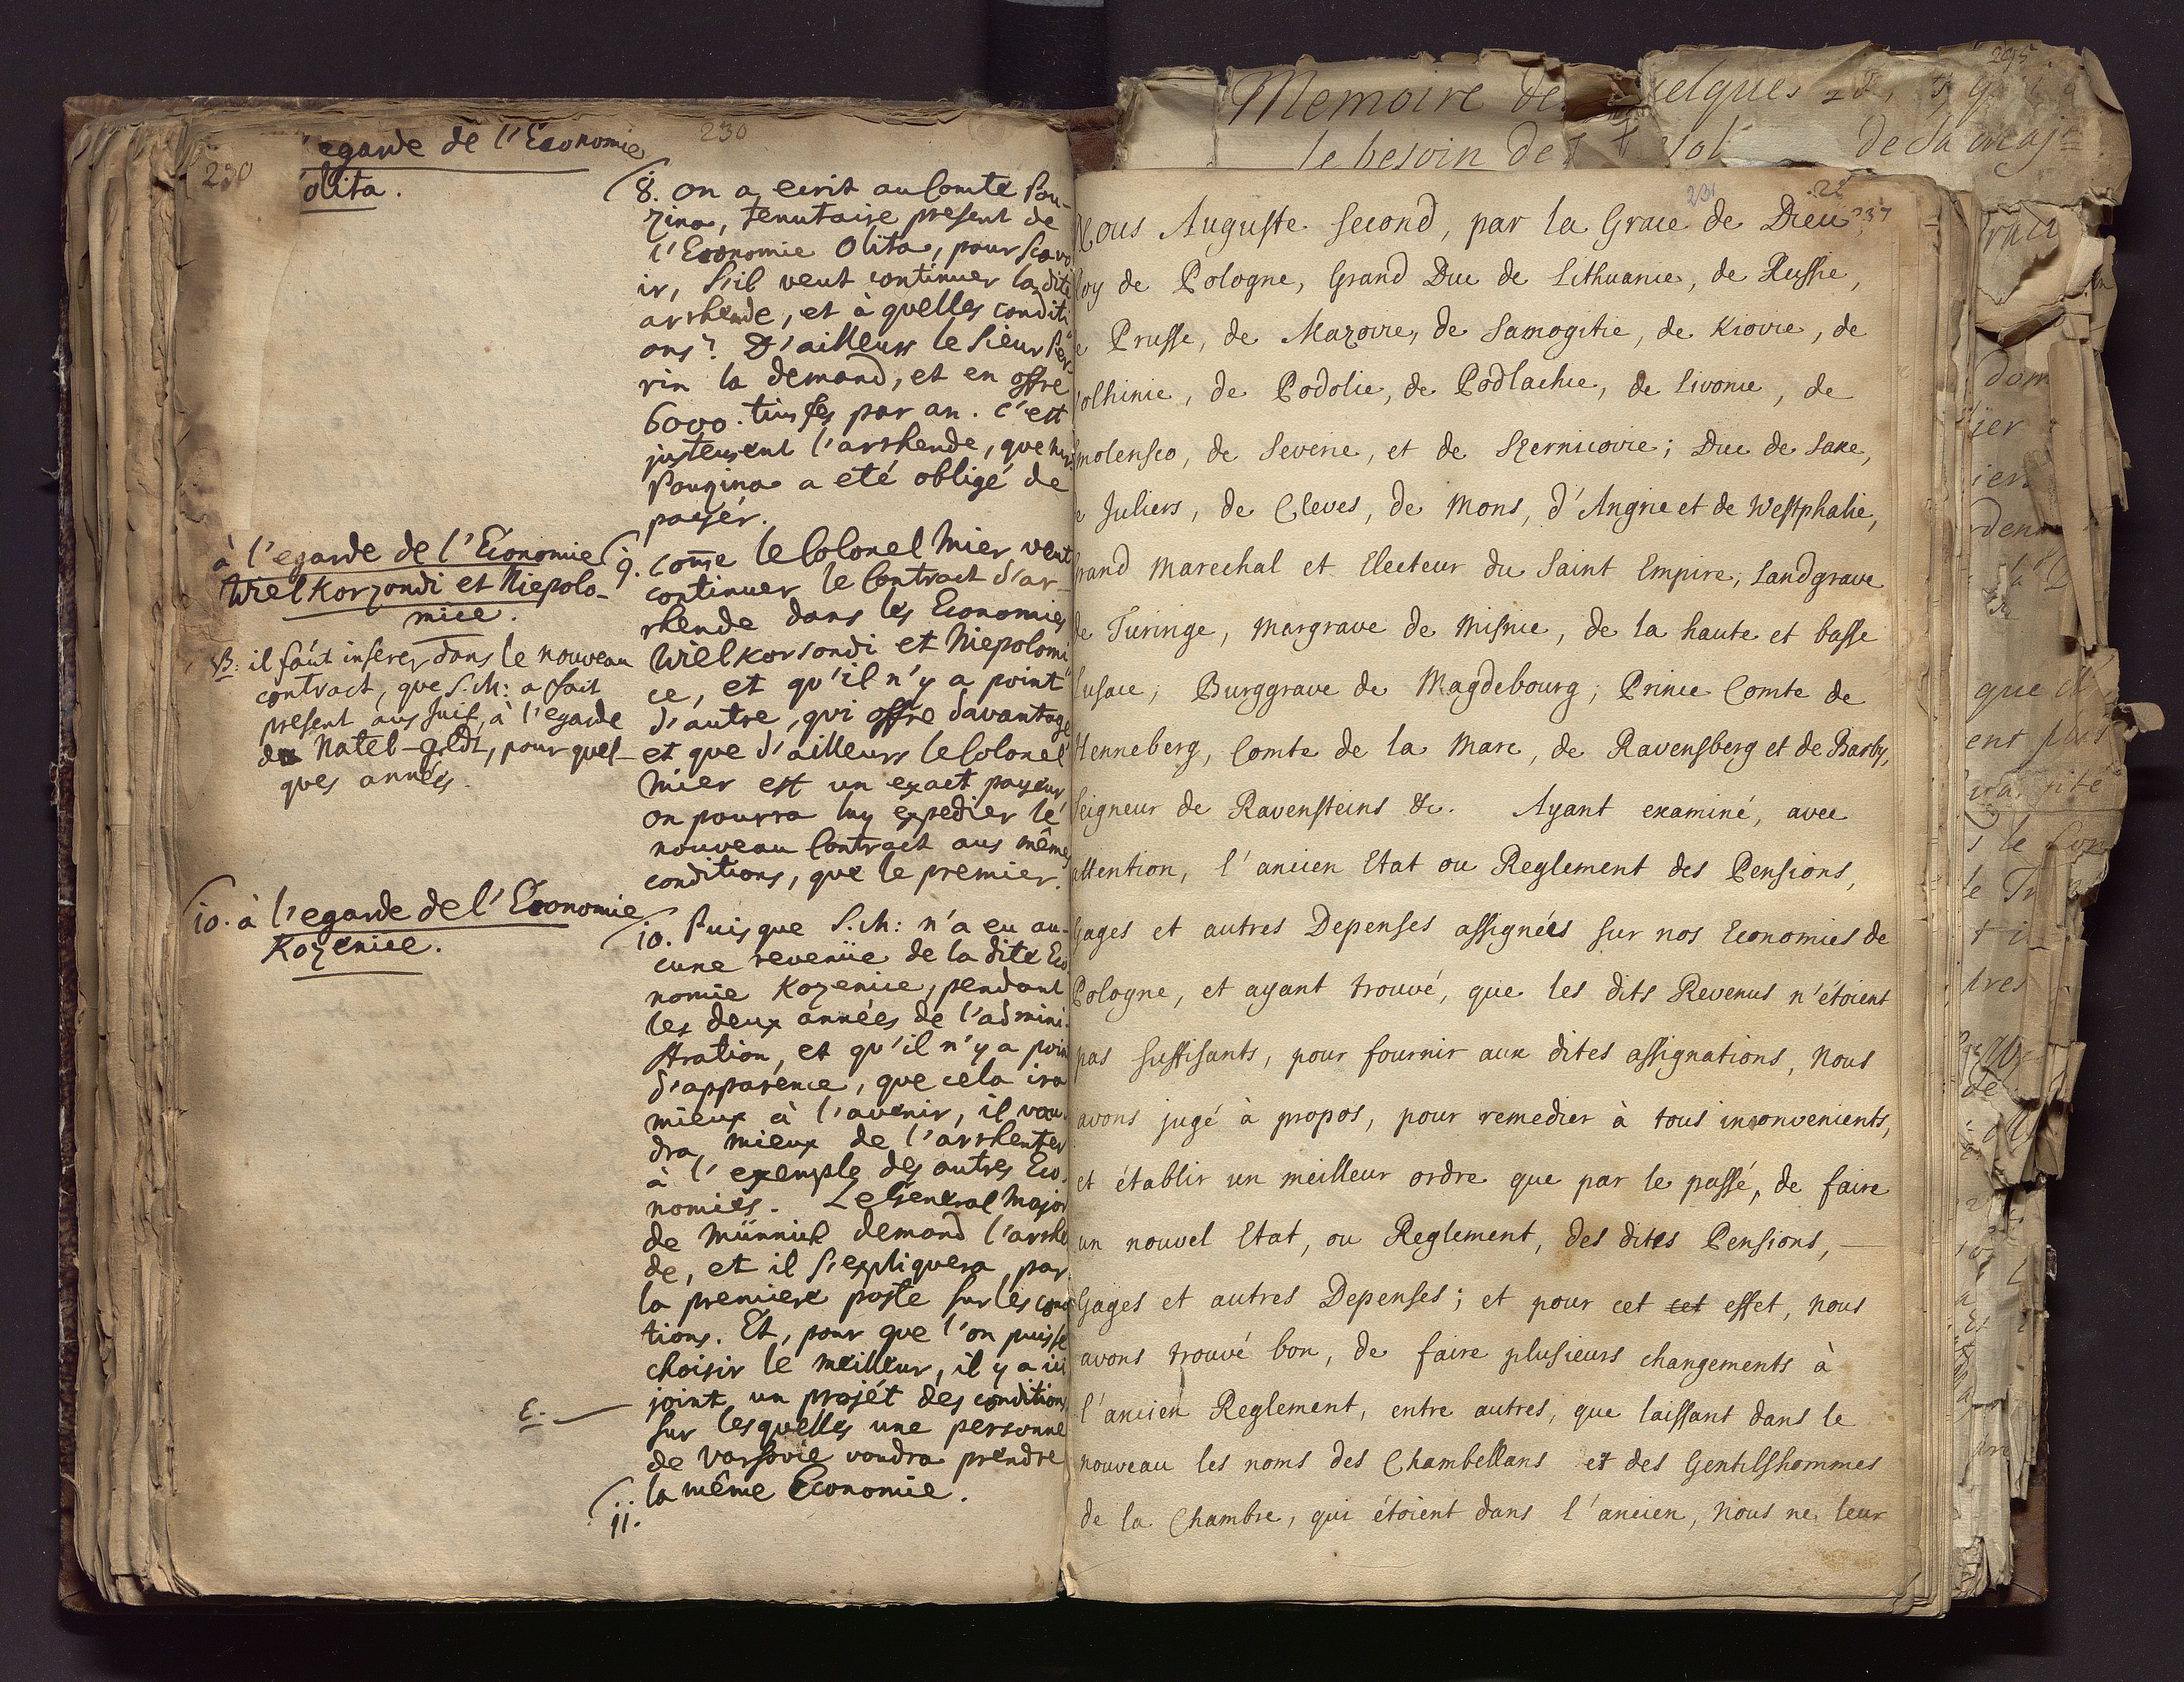 230
230
egarde de l'Economie
olita.
8. on a ecrit au Comte Pou-
zina, tenutaire present de
l'Economie Olita, pour scavo
ir, s'il veut continuer la dite
arrhende, et à quelles conditi
ons? D'ailleurs le Sieur Per
rin la demand, et en offre
6000. timfes par an. c'est
justement l'arrhende, que
Pouzina a eté obligé de
payér.
à l'egarde de l'Economie
Wielkorzondi et Niepolo-
mice.
NB: il faut inserer dans le nouveau
contract, que S. M: a fait
present aus Juifs, à l'egarde
de Natel-geldt, pour quel-
ques années.
9. come le Colonel Mier veut
continuer le Contract d'ar-
rhende dans les Economies
Wielkorsondi et Niepolomi
ce, et qu'il n'y a point
d'autre, qui offre davantage
et que d'ailleurs le Colonel
Mier est un exact payeur
on pourra luy expedier le
nouveau Contract aus mêmes
conditions, que le premier.
10. à l'egarde de l'Economie
Kozenice.
10. Puis que S. M: n'a eu au-
cune revenüe de la dite Eco
nomie Kozenice, pendant
les deux années de l'admini-
stration, et qu'il n'y a poin
d'apparence, que cela ira
mieux à l'avenir, il vau-
dra mieux de l'arrhenter
à l'exemple des autres Eco-
nomies. Le General Major
de Münnich demand l'arrhe
de, et il s'expliquera par
la premiere poste sur les con
tions. Et, pour que l'on puisse
choisir le meilleur, il y a ici
joint un projét des conditions
E.
sur lesquelles une personne
de Varsovie voudra prendre
la même Economie.
11.
Memoire de elques
le besoin de de Sa Maj
231
22
237
Nous Auguste Second, par la Grace de Dieu
Roy de Pologne, Grand Duc de Lithuanie, de Russie,
e Prusse, de Mazovie, de Samogitie, de Kiovie, de
olhinie, de Podolie, de Podlachie, de Livonie, de
molensco, de Severie, et de Szernicovie; Duc de Saxe,
e Juliers, de Cleves, de Mons, d'Angrie et de Westphalie,
rand Marechal et Electeur du Saint Empire, Landgrave
de Turinge, Margrave de Misnie, de la haute et basse
Lusace; Burggrave de Magdebourg; Prince Comte de
Henneberg, Comte de la Marc, de Ravensberg et de Barby,
Seigneur de Ravensteins &c. Ayant examiné, avec
attention, l'ancien Etat ou Reglement des Pensions,
Gages et autres Depenses assignées sur nos Economies de
Pologne, et ayant trouvé, que les dits Revenus n'étoient
pas suffisants, pour fournir aux dites assignations, Nous
avons jugé à propos, pour remedier à tous inconvenients,
et établir un meilleur ordre que par le passé, de faire
un nouvel Etat, ou Reglement, des dites Pensions,
Gages et autres Depenses; et pour cet cet effet, Nous
avons trouvé bon, de faire plusieurs changements à
l'ancien Reglement, entre autres, que laissant dans le
nouveau les noms des Chambellans et des Gentilshommes
de la Chambre, qui étoient dans l'ancien, Nous ne leur